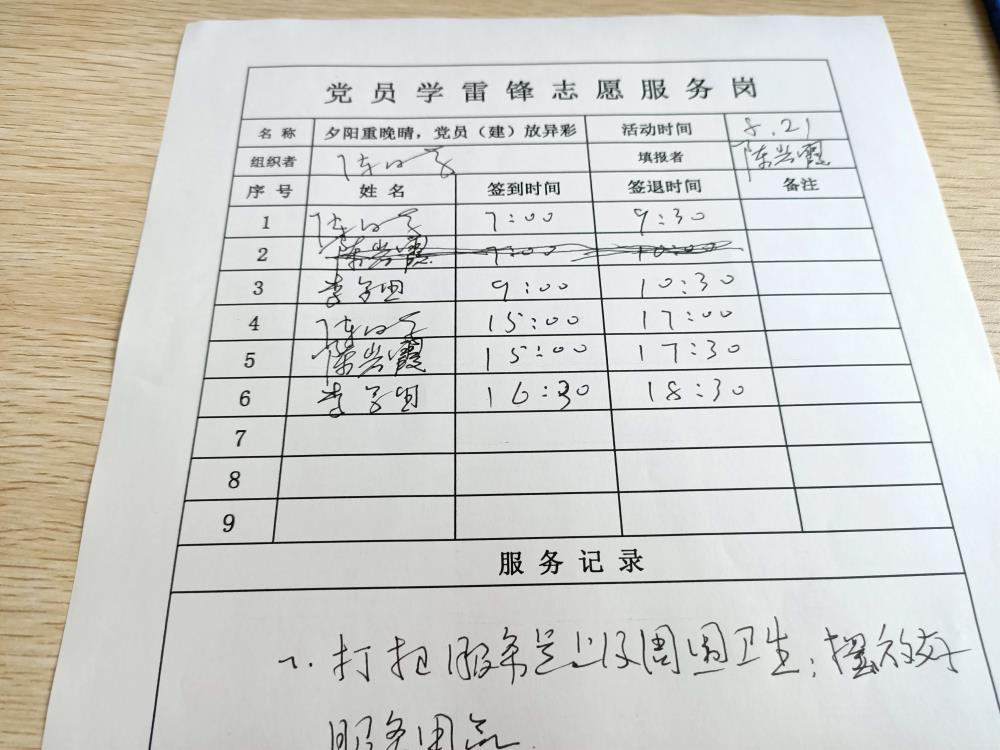 党员学雷锋志愿服务岗
名称 夕阳重晚晴，党员（建）放异彩 活动时间 8.21
组织者 陈 填报者 陈岩霞
序号 姓名 签到时间 签退时间 备注
1 陈 7:00 9:30
2 陈岩霞 7:00 10:00
3 李 9:00 10:30
4 陈 15:00 17:00
5 陈岩霞 15:00 17:30
6 李 16:30 18:30
7
8
9
服务记录
1.打扫服务台以及周围卫生；摆放好
服务用品.